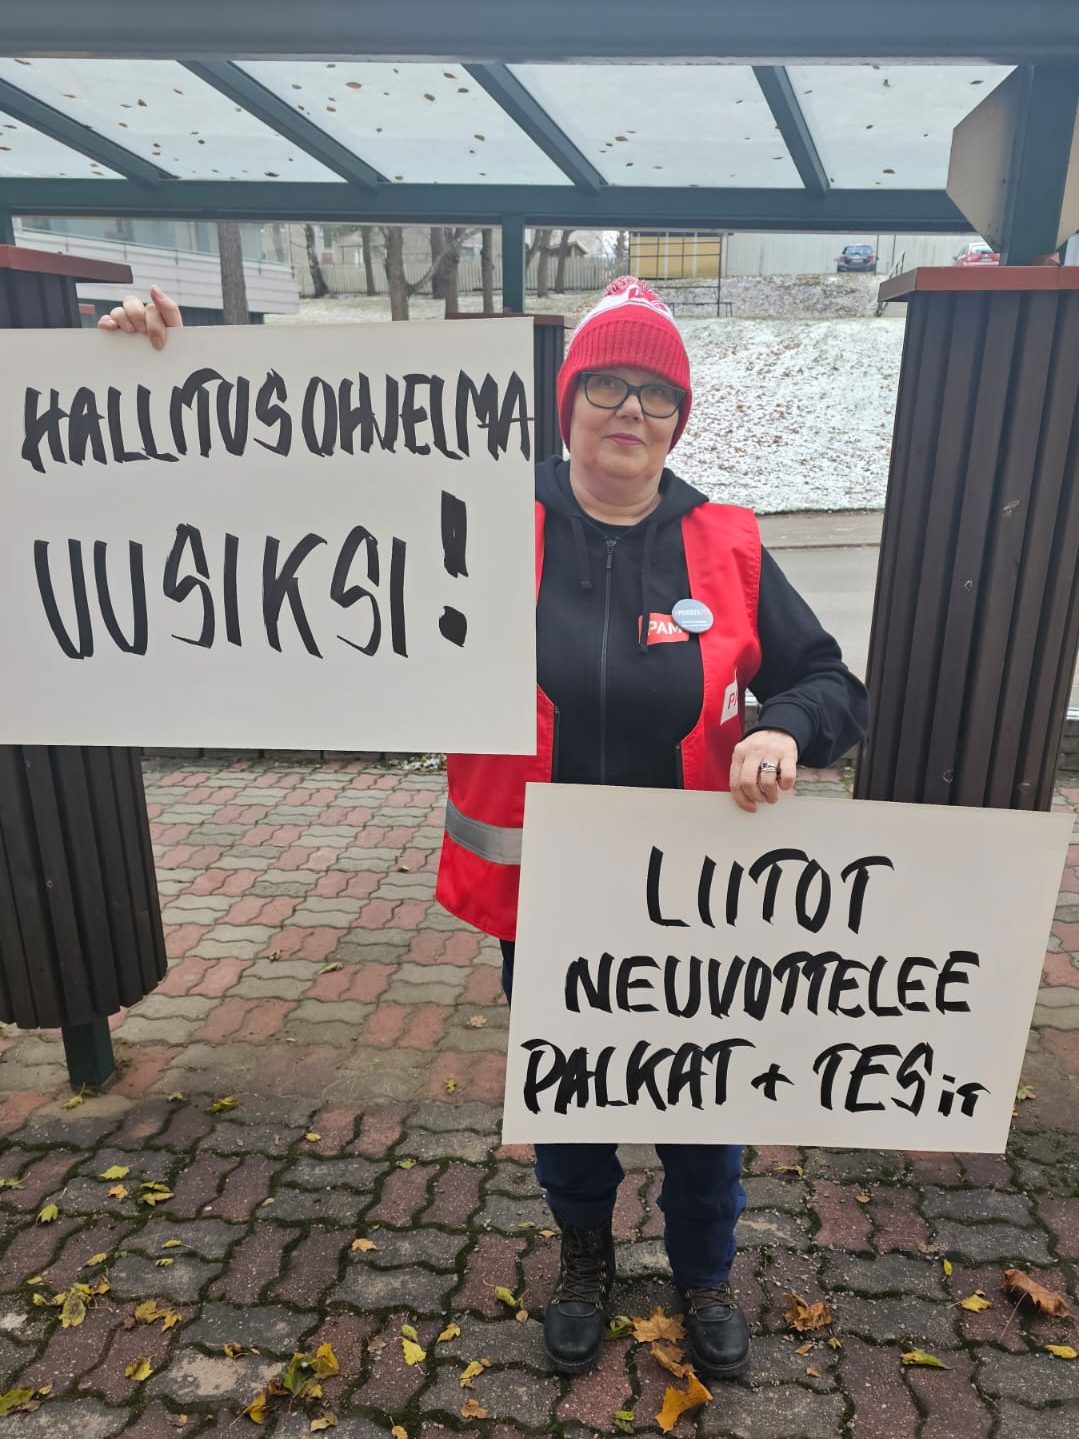 HALLITUSOHJELMA
UUSIKSI!
PAM
LIITOT
NEUVOTTELEE
PALKAT + TESit